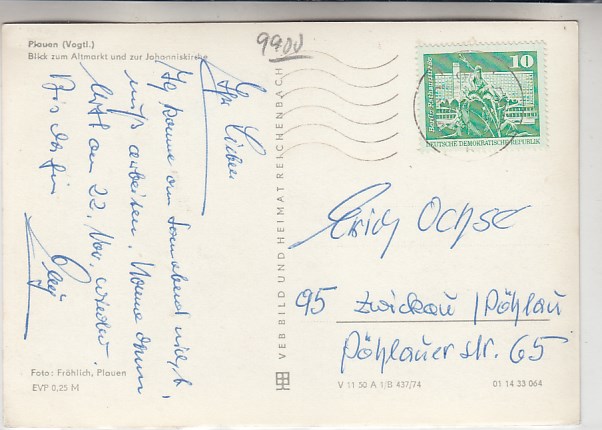 Plauen (Vogtl.)
Blick zum Altmarkt und zur Johanniskirche
9900
Ihr Lieben
Ich komme am Sonnabend nicht,
muß arbeiten. Komme dann
erst am 22. Nov. wieder.
Bis dahin
VEB BILD UND HEIMAT REICHENBACH
10
Berlin, Rathausstraße
DEUTSCHE DEMOKRATISCHE REPUBLIK
Erich Ochse
95 Zwickau / Pöhlau
Pöhlauer str. 65
Foto: Fröhlich, Plauen
EVP 0,25 M
V 11 50 A 1/B 437/74
01 14 33 064